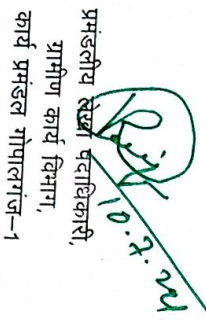 प्रमंडलीय लेखा पदाधिकारी,
ग्रामीण कार्य विभाग,
कार्य प्रमंडल गोपालगंज-1